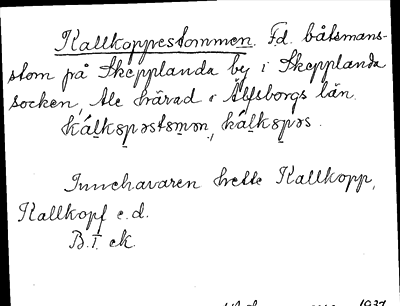 Kallkoppestommen. Fd. båtsmans-
stom på Skepplanda by i Skepplanda
socken, Ale härad i Älfsborgs län.
Innehavaren hette Kallkopp,
Kallkopf e.d.
B.I. ek.
1937